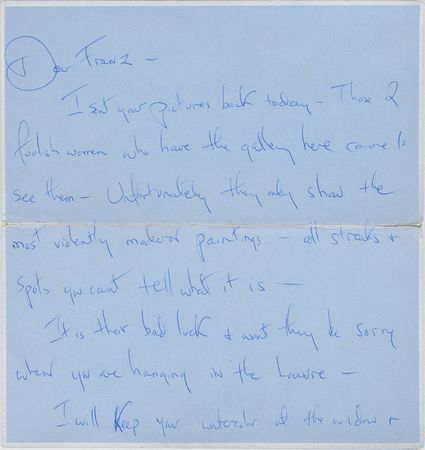 Dear Franz —
I sent your pictures back today — Those 2
foolish women who have the gallery here came to
see them — Unfortunately they only show the
most violently modern paintings — all streaks +
spots you cant tell what it is —
It is their bad luck + wont they be sorry
when you are hanging in the Louvre —
I will keep your watercolor of the window +